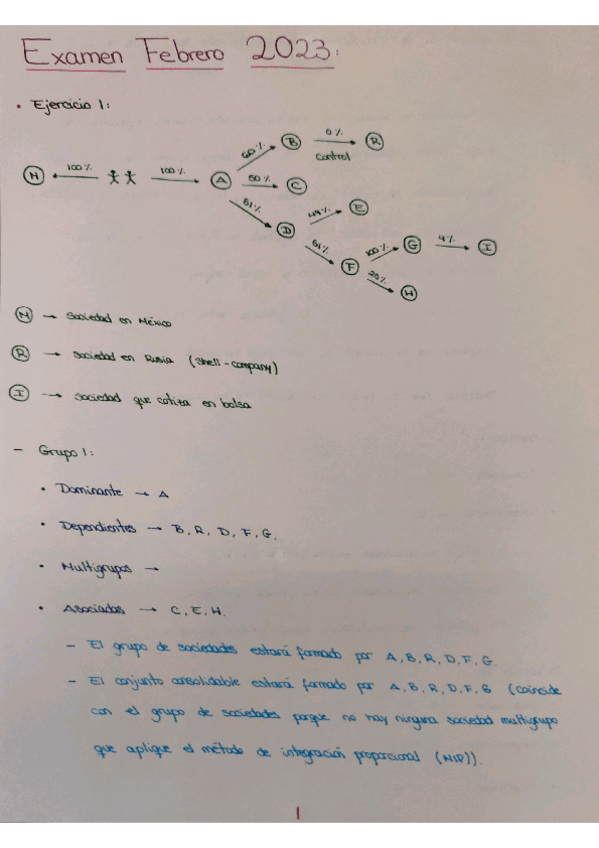 Examen Febrero 2023:
• Ejercicio 1:
M 100% 100% A 60% B 0% control R
50% C
51% D 49% E
51% F 100% G 4% I
20% H
M → Sociedad en México
R → Sociedad en Rusia (Shell-company)
I → Sociedad que cotiza en bolsa
- Grupo 1:
• Dominante → A
• Dependientes → B, R, D, F, G.
• Multigrupos →
• Asociadas → C, E, H.
- El grupo de sociedades estará formado por A, B, R, D, F, G.
- El conjunto consolidable estará formado por A, B, R, D, F, G (coincide
con el grupo de sociedades porque no hay ninguna sociedad multigrupo
que aplique el método de integración proporcional (MIP)).
1